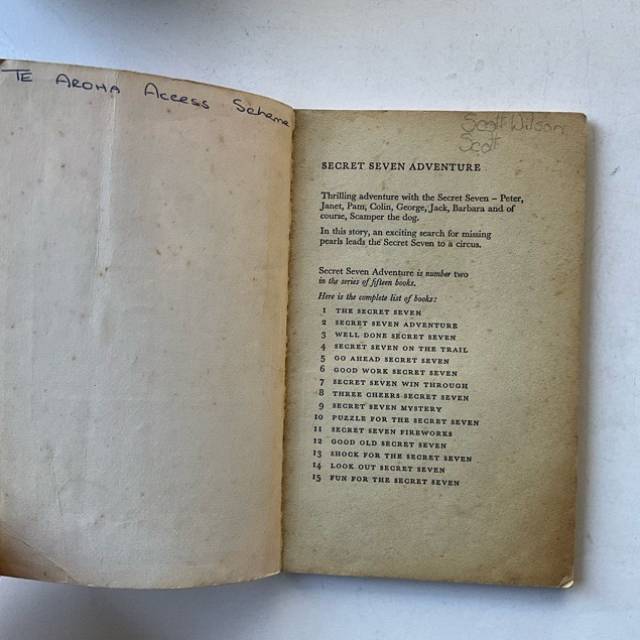 TE AROHA Access Scheme
Scott Wilson
Scott
SECRET SEVEN ADVENTURE
Thrilling adventure with the Secret Seven – Peter,
Janet, Pam, Colin, George, Jack, Barbara and of
course, Scamper the dog.
In this story, an exciting search for missing
pearls leads the Secret Seven to a circus.
Secret Seven Adventure is number two
in the series of fifteen books.
Here is the complete list of books:
1 THE SECRET SEVEN
2 SECRET SEVEN ADVENTURE
3 WELL DONE SECRET SEVEN
4 SECRET SEVEN ON THE TRAIL
5 GO AHEAD SECRET SEVEN
6 GOOD WORK SECRET SEVEN
7 SECRET SEVEN WIN THROUGH
8 THREE CHEERS SECRET SEVEN
9 SECRET SEVEN MYSTERY
10 PUZZLE FOR THE SECRET SEVEN
11 SECRET SEVEN FIREWORKS
12 GOOD OLD SECRET SEVEN
13 SHOCK FOR THE SECRET SEVEN
14 LOOK OUT SECRET SEVEN
15 FUN FOR THE SECRET SEVEN